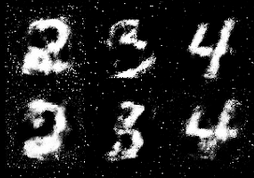 2 3 4
2 3 4